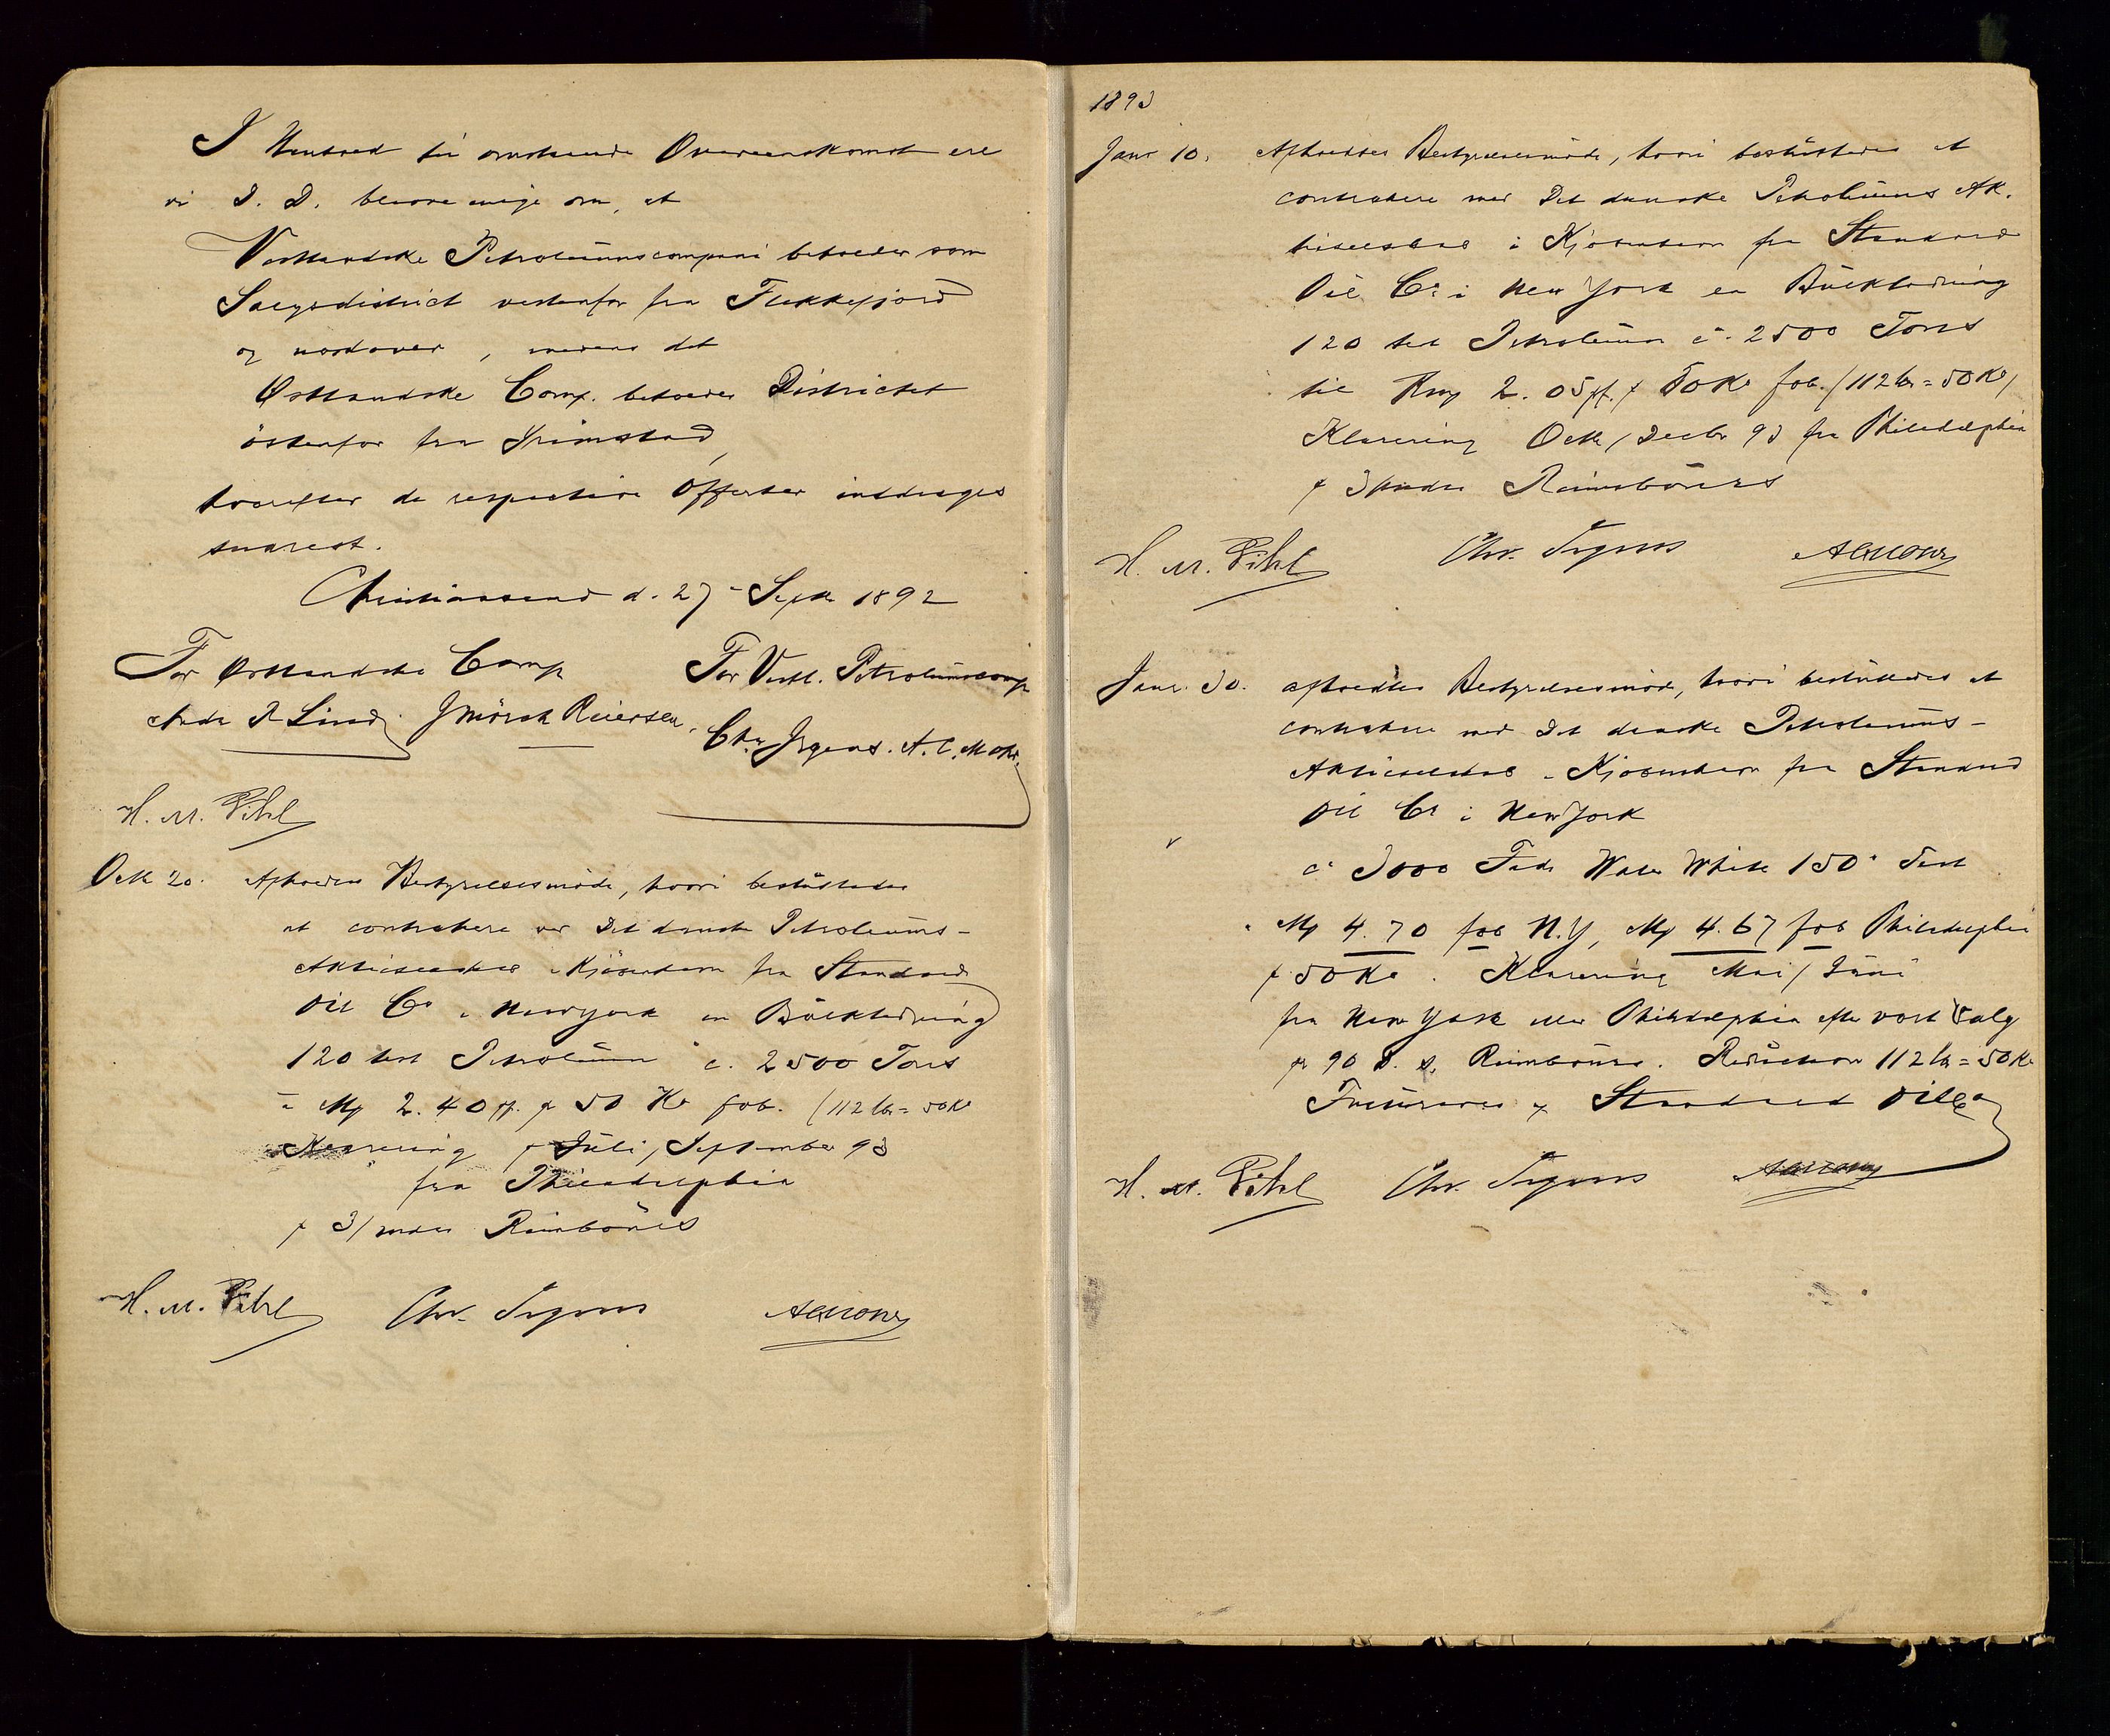 I Henhold til omstaaende Overeenskomst ere
vi D. D. blevne enige om, at
Vestlandske Petroleumscompani beholder som
Salgsdistrict vestenfor fra Flekkefjord
og nordover, medens det
Østlandske Comp. beholder Districtet
östenfor fra Grimstad,
hvorefter de respective Offerter inddrages
snarest.
Christianssand d. 27 Septr 1892
For Østlandske Comp For Vestl. Petroleumscomp
J Mörch Reiersen, Chr. Irgens. A. C. Mohr.
H. M. Pihl
Octr 20. Afholdtes Bestyrelsesmöde, hvori besluttedes
at contrahere med Det danske Petroleums-
Aktieselskab i Kjöbenhavn fra Standard
Oil Co i New York en Bulkladning
120 test Petroleum c. 2500 Tons
à Mk 2.40 pf. pr 50 Ko fob. (112 lbs = 50 Ko
Klarering pr Juli/September 93
fra Philadelphia
pr 3/mdrs Reimbours
H. M. Pihl Chr. Irgens A C Mohr
1893
Janr 10. Afholdtes Bestyrelsesmöde, hvori besluttedes at
contrahere med Det danske Petroleums Ak-
tieselskab i Kjøbenhavn fra Standard
Oil Co i New York en Bulkladning
120 test Petroleum c. 2500 Tons
til Rmk 2.05 pf. pr 50 Ko fob. (112 lbs = 50 Ko)
Klarering Octr/Decbr 93 fra Philadelphia
pr 3/mdrs Reimbours
H. M. Pihl Chr. Irgens A C Mohr
Janr. 30. afholdtes Bestyrelsesmöde, hvori besluttedes at
contrahere med Det danske Petroleums-
Aktieselskab i Kjøbenhavn fra Standard
Oil Co i New York
c. 3000 Fade Water White 150° Test
à Mk 4.70 fob N.Y, Mk 4.67 fob Philadelphia
pr 50 Ko. Klarering Mai/Juni
fra New York eller Philadelphia efter vort Valg
pr 90 D. s. Reimbours. Reduction 112 lbs = 50 Ko
pr Standard Oil Co
H. M. Pihl Chr. Irgens A C Mohr